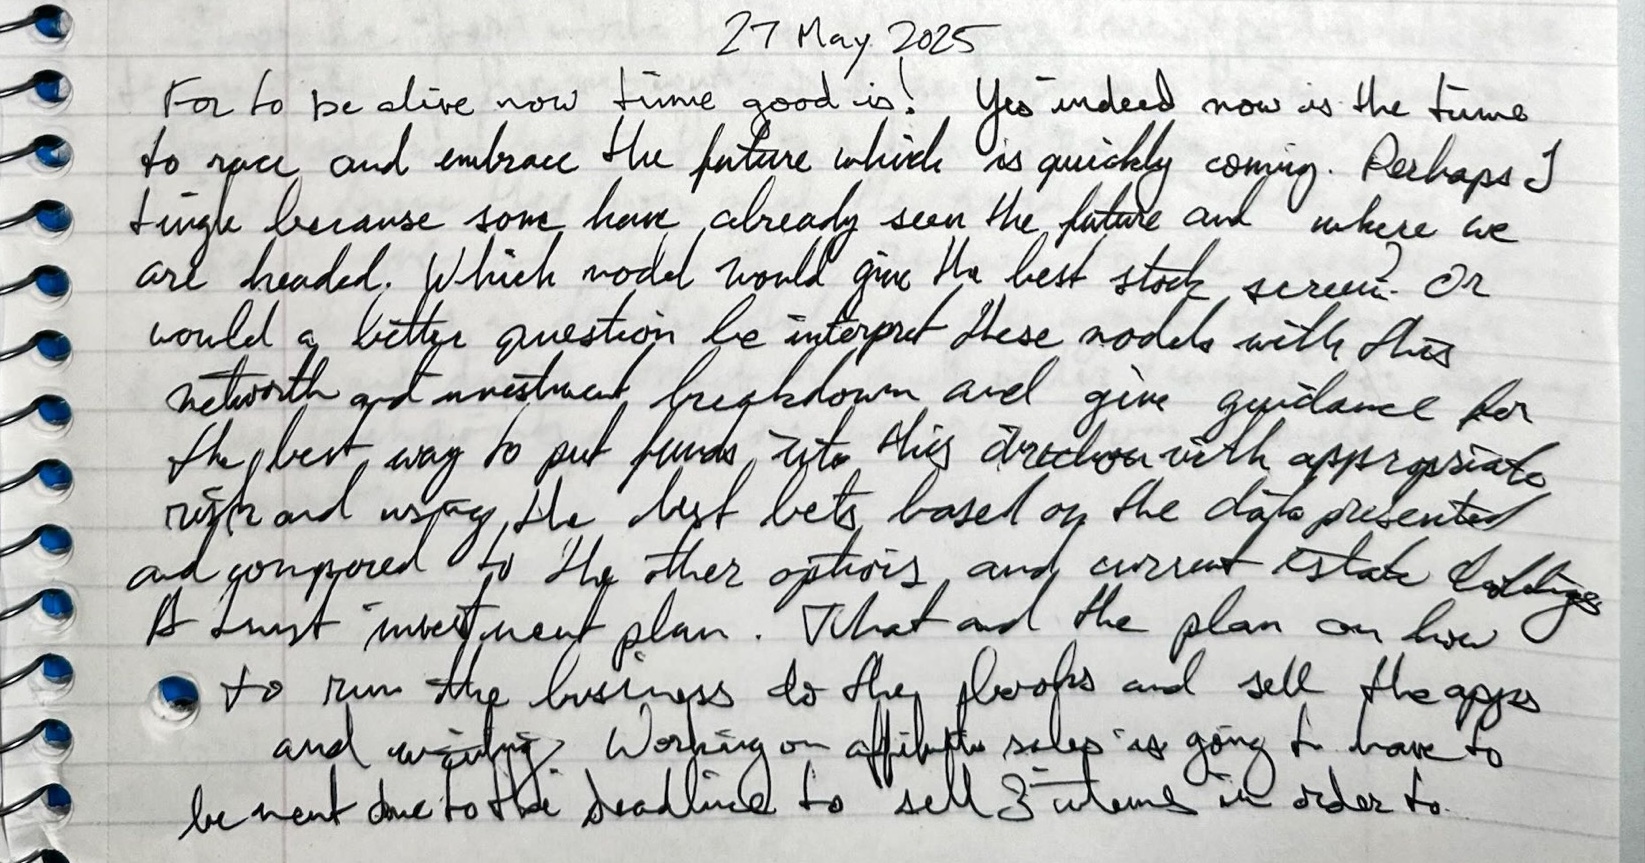 27 May 2025
For to be alive now time good is! Yes indeed now is the time
to race and embrace the future which is quickly coming. Perhaps I
tingle because some have already seen the future and where we
are headed. Which model would give the best stock screen? Or
would a better question be interpret these models with this
networth and investment breakdown and give guidance for
the best way to put funds into this direction with appropriate
risk and using the best bets based on the data presented
and compared to the other options and current estate holdings
A trust investment plan. That and the plan on how
to run the business do the books and sell the apps
and writing. Working on affiliate sales is going to have to
be next due to the deadline to sell 3 items in order to